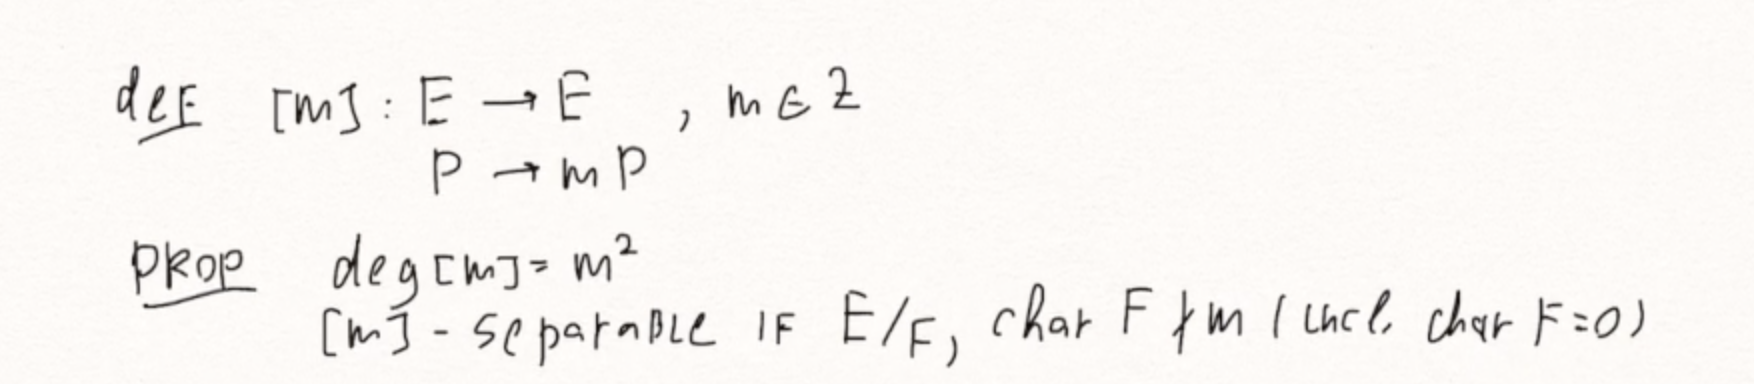 def [m]: E → E , m ∈ Z
P → mP
PROP deg[m] = m²
[m] - separable IF E/F, char F ∤ m (incl. char F=0)